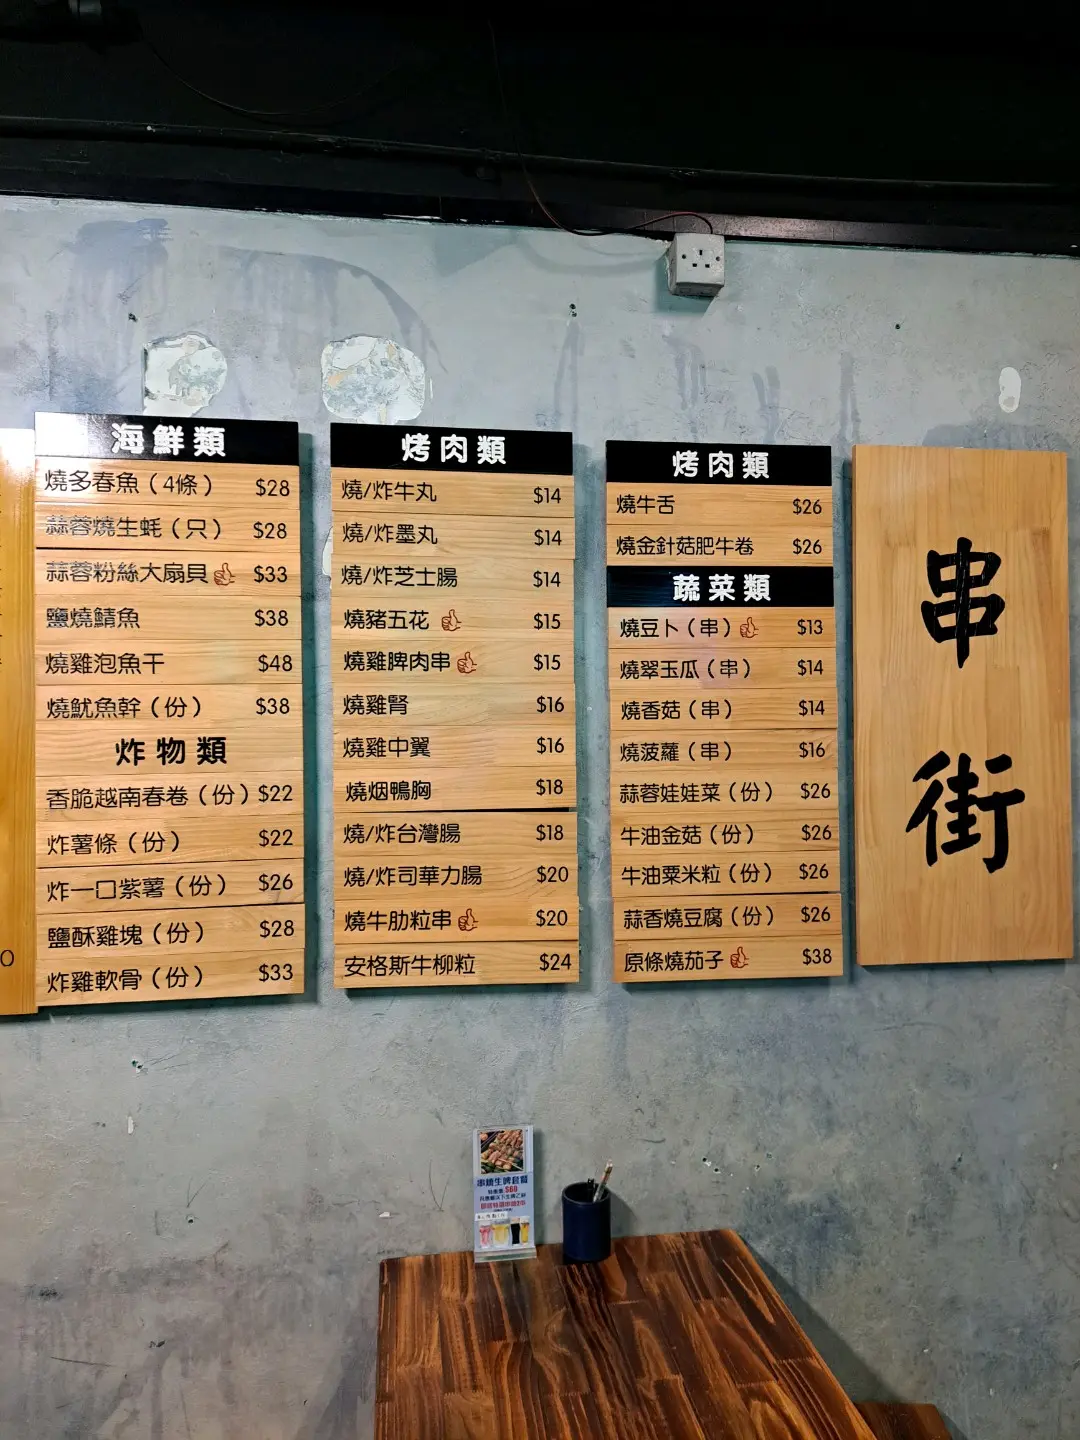 海鮮類
燒多春魚（4條） $28
蒜蓉燒生蚝（只） $28
蒜蓉粉絲大扇貝 $33
鹽燒鯖魚 $38
燒雞泡魚干 $48
燒魷魚幹（份） $38
炸物類
香脆越南春卷（份） $22
炸薯條（份） $22
炸一口紫薯（份） $26
鹽酥雞塊（份） $28
炸雞軟骨（份） $33
烤肉類
燒/炸牛丸 $14
燒/炸墨丸 $14
燒/炸芝士腸 $14
燒豬五花 $15
燒雞脾肉串 $15
燒雞腎 $16
燒雞中翼 $16
燒烟鴨胸 $18
燒/炸台灣腸 $18
燒/炸司華力腸 $20
燒牛肋粒串 $20
安格斯牛柳粒 $24
烤肉類
燒牛舌 $26
燒金針菇肥牛卷 $26
蔬菜類
燒豆卜（串） $13
燒翠玉瓜（串） $14
燒香菇（串） $14
燒菠蘿（串） $16
蒜蓉娃娃菜（份） $26
牛油金菇（份） $26
牛油粟米粒（份） $26
蒜香燒豆腐（份） $26
原條燒茄子 $38
串街
串燒生啤套餐
$60